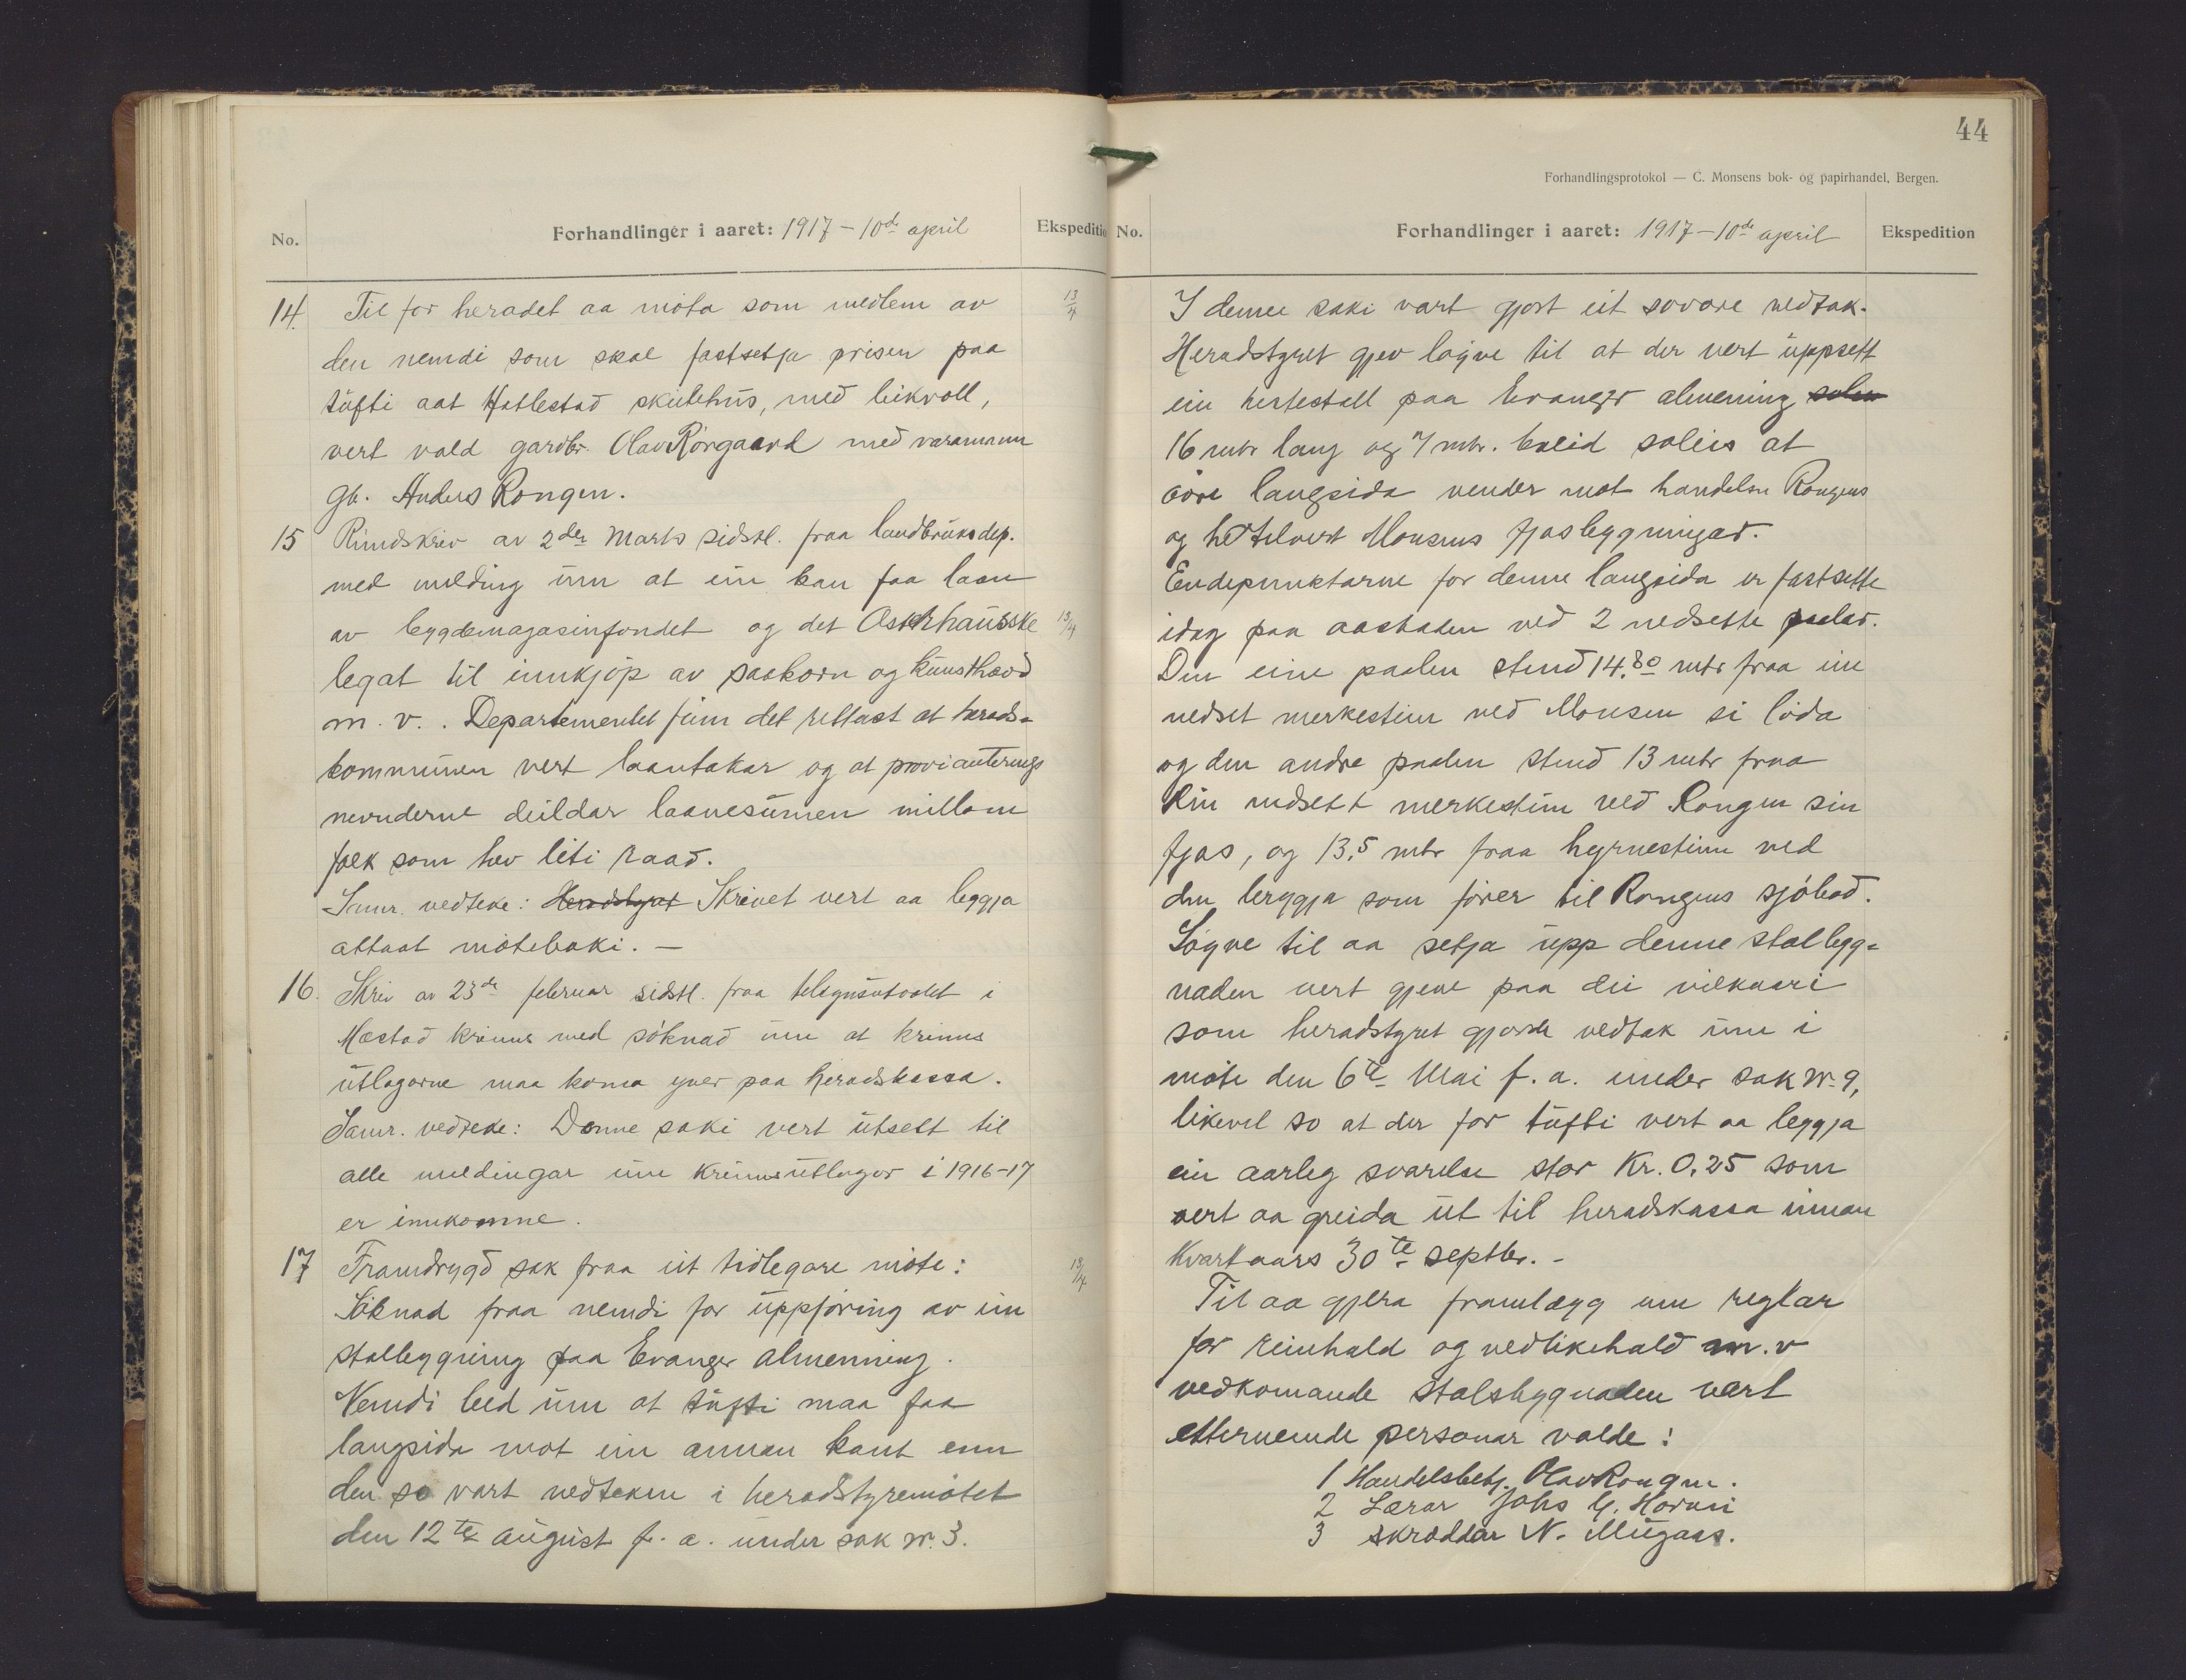 No.
Forhandlinger i aaret: 1917 – 10de april
Ekspeditio
14. Til for heradet aa møta som medlem av
13/4
den nemdi som skal fastsetja prisen paa
tufti aat Hatlestad skulehus, med leikvoll,
vert vald gardbr. Olav Rørgaard med varamann
gb. Anders Rongen.
15 Rundskriv av 2den Marts sidstl. fraa landbruksdep.
med melding um at ein kan faa laan
av bygdemagasinfondet og det Astrhauske
13/4
legat til innkjøp av saakorn og kunsthævd
m. v. . Departementet finn det rettast at herads-
kommunen vert laantakar og at provianterings
nevnderne deildar laanesumen millom
folk som hev liti raad.
Samr. vedteke: Heradstyret Skrivet vert aa leggja
attaat møteboki. —
16. Skriv av 23de februar sidstl. fraa tilsynsutvalet i
Mæstad krinns med søknad um at krinns
utlagorne maa koma yver paa heradskassa.
Samr. vedteke: Denne saki vert utsett til
alle meldingar um krinnsutlagor i 1916-17
er innkomne.
17 Framdrygd sak fraa eit tidlegare møte:
13/4
Søknad fraa nemdi for uppføring av ein
stallbygning paa Evanger almenning.
Nemdi bed um at tufti maa faa
langsida mot ein annan kant enn
den so vart vedteken i heradstyremøtet
den 12te august f. a. under sak nr. 3.
44
Forhandlingsprotokol — C. Monsens bok- og papirhandel, Bergen.
No.
Forhandlinger i aaret: 1917 – 10de april
Ekspedition
I denne saki vart gjort eit sovore vedtak.
Heradstyret gjev løyve til at der vert uppsett
ein hestestall paa Evanger almenning
16 mtr lang og 7 mtr. breid soleis at
øvre langsida vender mot handelsm Rongens
og hotelvert Monsens fjosbygningar.
Endepunktarne for denne langsida er fastsette
idag paa aastaden ved 2 nedsette paalar.
Den eine paalen stend 14.80 mtr fraa ein
nedset merkestein ved Monsen si løda
og den andre paalen stend 13 mtr fraa
ein nedsett merkestein ved Rongen sin
fjos, og 13.5 mtr fraa hyrnestein ved
den bryggja som fører til Rongens sjøbod.
Løyve til aa setja upp denne stallbyg-
naden vert gjeve paa dei vilkaari
som heradstyret gjorde vedtak um i
møte den 6te Mai f. a. under sak nr. 9,
likevel so at der for tufti vert aa leggja
ein aarleg svarelse stor Kr. 0,25 som
vert aa greida ut til heradskassa innan
kvart aars 30te septbr. –
Til aa gjera framlegg um reglar
for reinhald og vedlikehald m. v
vedkomande stalsbygnaden vart
etternemde personar valde:
1 Handelsbetj. Olav Rongen.
2 Lærar Johs G. Horvei
3 skræddar N. Mugaas.